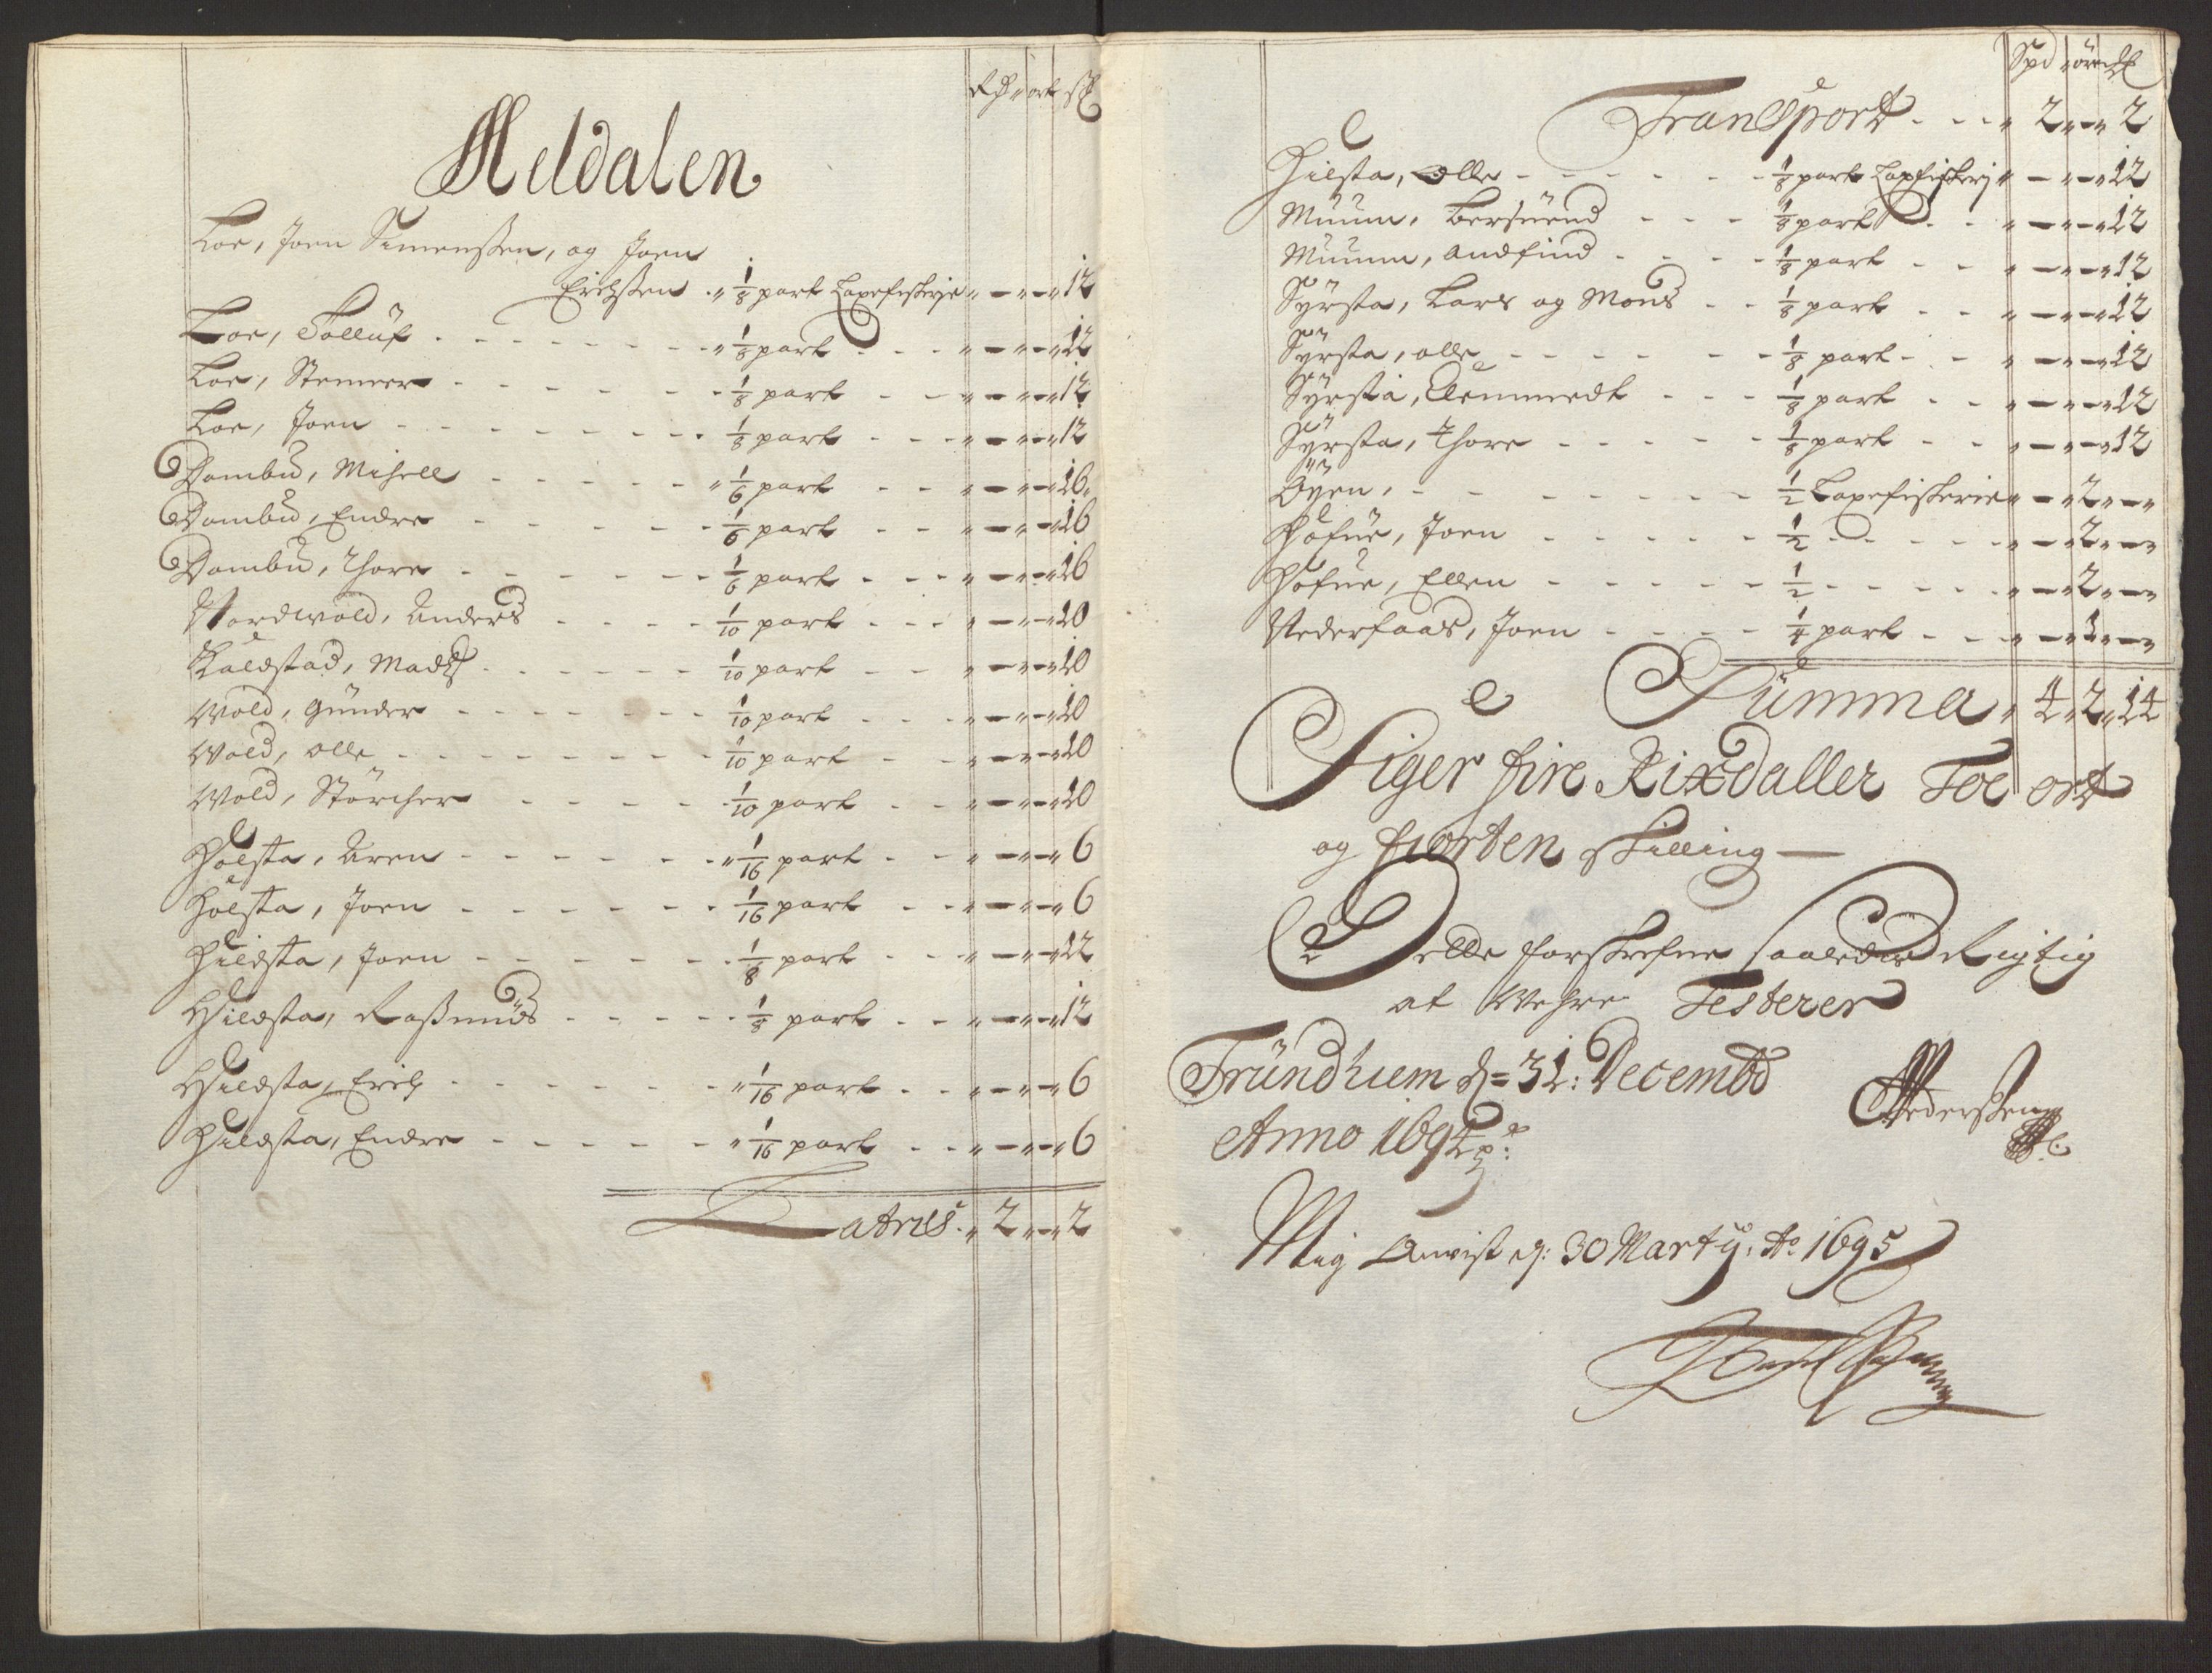 Rdr ort ß
Meldalen
Loe, Joen Simenssen, og Joen
Erichssen " 1/8 part Laxefiskerje " — " — " 12
Loe, Tolluf " 1/8 part " — " — " 12
Loe, Stenner 1/8 part " — " — " 12
Loe, Joen 1/8 part " — " — " 12
Dambu, Mihell " 1/6 part " — " — " 16
Dambu, Endre 1/6 part " — " — " 16
Dambu, Thore 1/6 part " — " — " 16
Nordwold, Anders 1/10 part " — " — " 10
Kaldstad, Madtz 1/10 part " — " — " 10
Wold, Gunder 1/10 part " — " — " 10
Wold, Olle 1/10 part " — " — " 10
Wold, Störcher 1/10 part " — " — " 10
Holsta, Aren " 1/16 part " — " — " 6
Holsta, Joen 1/16 part " — " — " 6
Hildsta, Joen 1/8 part " — " — " 12
Hildsta, Rassmus 1/8 part " — " — " 12
Hildsta, Erich " 1/16 part " — " — " 6
Hildsta, Endre " 1/16 part " — " — " 6
Latus " 2 " — " 2
Spd ort ß
Transport " 2 " — " 2
Hilsta, Olle 1/8 part Laxfiskerj " — " — " 12
Muum, Bersuend 1/8 part " — " — " 12
Muum, Andfind 1/8 part " — " — " 12
Syrsta, Lars og Mons 1/8 part " — " — " 12
Syrsta, Olle 1/8 part " — " — " 12
Syrsta, Clemmedt 1/8 part " — " — " 12
Syrsta, Thore 1/8 part " — " — " 12
Öyen, 1/2 Laxefiskerie " — " 2 " — "
Hofue, Joen 1/2 " — " 2 " — "
Hofue, Ellen 1/2 " — " 2 " — "
Wederfaas, Joen 1/4 part " — " 1 " — "
Summa " 4 " 2 " 14
Siger fire Rixdaller Toe ort
og fiorten skilling —
Dette forskrefne saaledes Rigtig
at Wehre Testerer
Trundhiem d = 31: Decembr
Anno 1694
Pederssen
Mig Anvist d: 30 Marty: Ao 1695